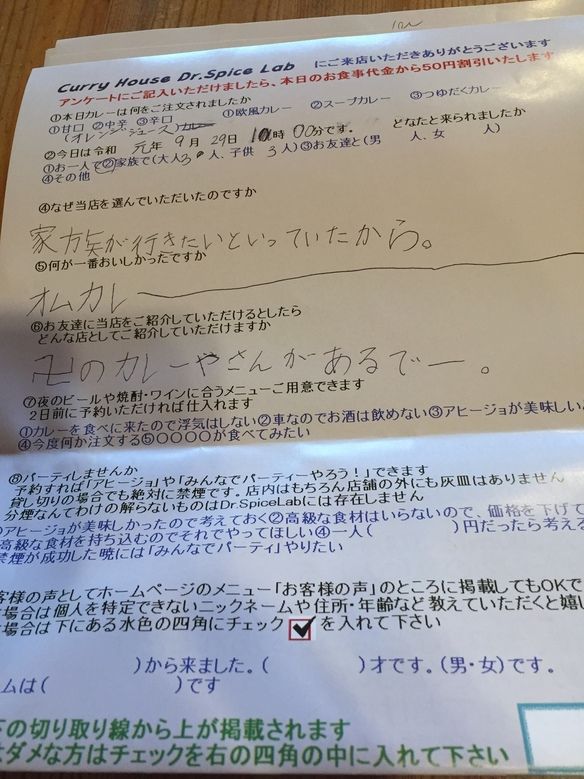 Curry House Dr.Spice Lab にご来店いただきありがとうございます
アンケートにご記入いただけましたら、本日のお食事代金から50円割引いたします
①本日カレーは何をご注文されましたか
①甘口 ②中辛 ③辛口 ①欧風カレー ②スープカレー ③つゆだくカレー
(オレンジジュース)
②今日は令和 元年 9月 29日 10時 00分です。 どなたと来られましたか
①お一人で②家族で(大人3人、子供 3人)③お友達と(男 人、女 人)
④その他
④なぜ当店を選んでいただいたのですか
家族が行きたいといっていたから。
⑤何が一番おいしかったですか
オムカレー
⑥お友達に当店をご紹介していただけるとしたら
どんな店としてご紹介していただけますか
卍のカレーやさんがあるでー。
⑦夜のビールや焼酎・ワインに合うメニューご用意できます
2日前に予約いただければ仕入れます
①カレーを食べに来たので浮気はしない②車なのでお酒は飲めない③アヒージョが美味しい
④今度何か注文する⑤〇〇〇〇が食べてみたい
⑧パーティしませんか
予約すれば「アヒージョ」や「みんなでパーティーやろう！」できます
貸し切りの場合でも絶対に禁煙です。店内はもちろん店舗の外にも灰皿はありません
分煙なんてわけの解らないものはDr.SpiceLabには存在しません
アヒージョが美味しかったので考えておく②高級な食材はいらないので、価格を下げて
高級な食材を持ち込むのでそれでやってほしい④一人( )円だったら考える
禁煙が成功した暁には「みんなでパーティ」やりたい
客様の声としてホームページのメニュー「お客様の声」のところに掲載してもOKで
場合は個人を特定できないニックネームや住所・年齢など教えていただくと嬉し
場合は下にある水色の四角にチェック ✓ を入れて下さい
)から来ました。( )才です。(男・女)です。
ムは( )です
下の切り取り線から上が掲載されます
ダメな方はチェックを右の四角の中に入れて下さい